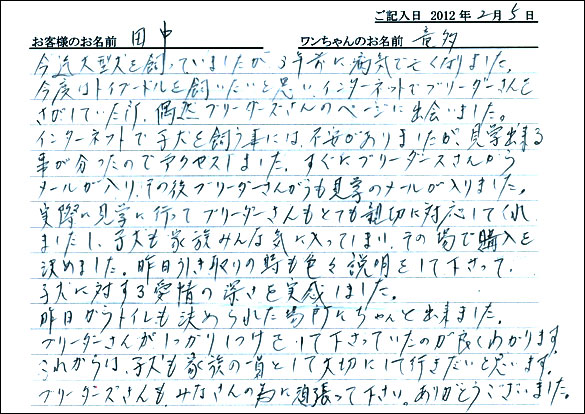 ご記入日 2012年2月5日
お客様のお名前 田中 ワンちゃんのお名前 竜多
今迄大型犬を飼っていましたが3年前に病気で亡くなりました。
今度はトイプードルを飼いたいと思い、インターネットでブリーダーさんを
さがしていた所、偶然ブリーダーズさんのページに出会いました。
インターネットで子犬を飼う事には、不安がありましたが、見学出来る
事が分ったのでアクセスしました。すぐにブリーダーズさんから
メールが入り、その後ブリーダーさんからも見学のメールが入りました。
実際に見学に行ってブリーダーさんもとても親切に対応してくれ
ましたし、子犬も家族みんな気に入ってしまい、その場で購入を
決めました。昨日引き取りの時も色々説明をして下さって、
子犬に対する愛情の深さを実感しました。
昨日からトイレも決められた場所にちゃんと出来ました。
ブリーダーさんがしっかりしつけをして下さっていたのが良くわかります。
これからは、子犬も家族の一員として大切にして行きたいと思います。
ブリーダーズさんも、みなさんの為に頑張って下さい。ありがとうございました。